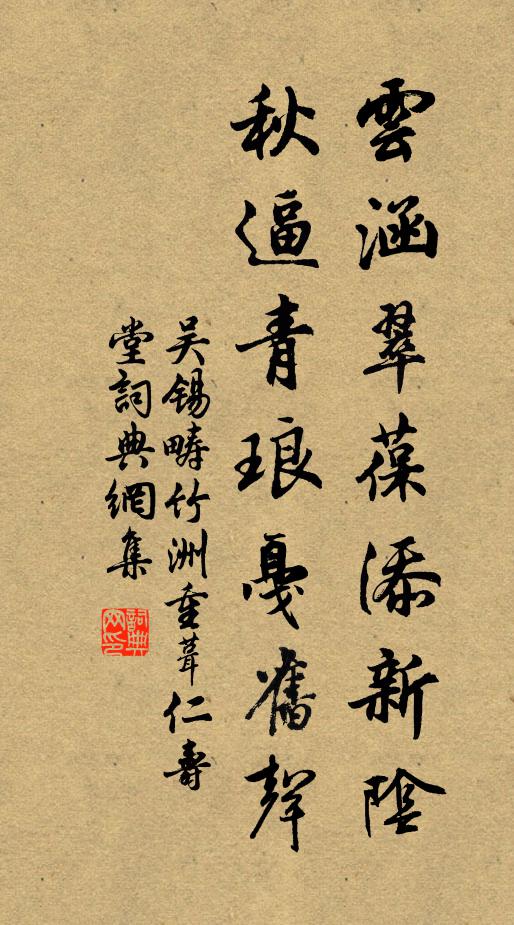 雲涵翠葆添新陰
秋逼青琅戞舊聲
吴錫疇竹洲重葺仁壽
堂詞典網集
詞典
网印